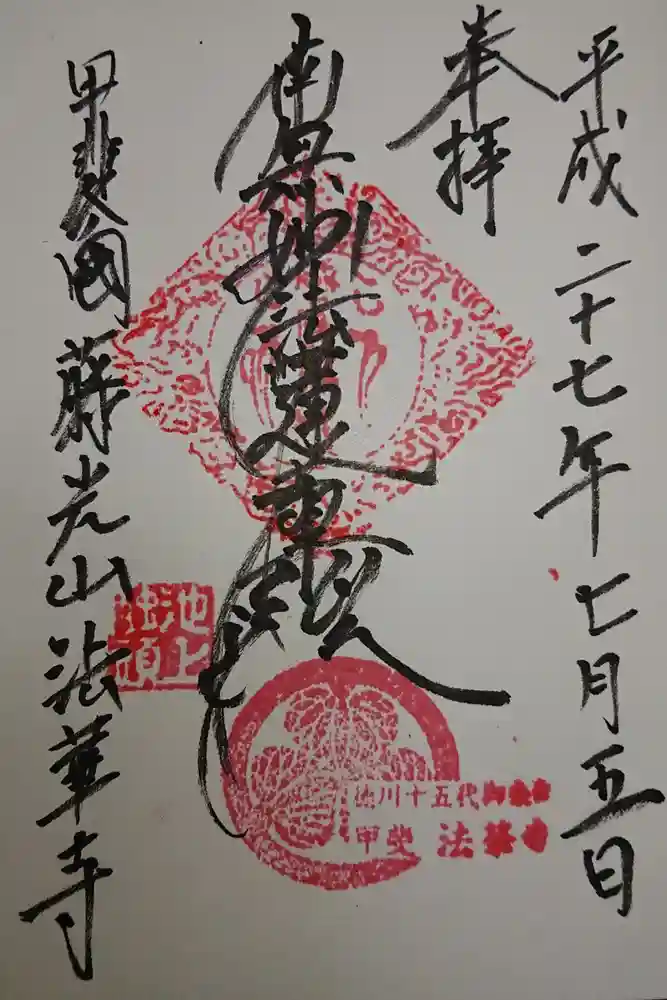 平成二十七年七月五日
奉拝
南無妙法蓮華経
甲斐國 藤光山法華寺
徳川十五代御朱印
甲斐 法華寺